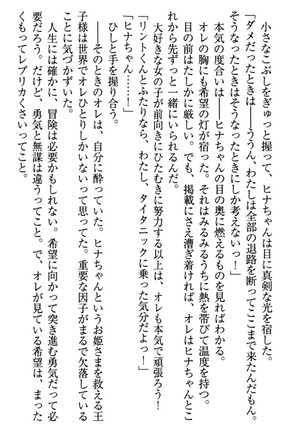 小さなこぶしをぎゅっと握って、ヒナちゃんは目に真剣な光を宿した。
「ダメだったときは――ううん、わたしは全部の退路を断ってここまで来たんだもん。
そうなったときはそうなったときにしか考えないっ！」
本気の度合いは――ヒナちゃんの目の奥に燃えるものを見ればわかる。
オレの胸にも希望の灯が宿った。それはみるみるうちに熱を帯びて温度を持つ。
これはたしかに厳しい。でも、掲載にさえ漕ぎ着ければ、オレはヒナちゃんとこ
れから先ずっと一緒にいられるんだ。
大好きな女の子が前向きにひたむきに努力する以上は、オレも本気で頑張ろう！
「リントくんとふたりなら、わたし、タイタニックに乗った気分だよっ！」
「ヒナちゃん……！」
ひしと手を握り合う。
――そのときのオレは、自分に酔っていた。ヒナちゃんというお姫さまを救える王
子様は世界でオレひとりしかいないって思ってた。重要な因子がまるで欠落している
ことに気づかずいた。
人生には確かに、冒険は必要かもしれない。希望に向かって突き進む勇気だって必
要だろう。だけど、勇気と無謀は違うってこと。で、オレが見ている希望は、まった
くもってレプリカくさいってこと。